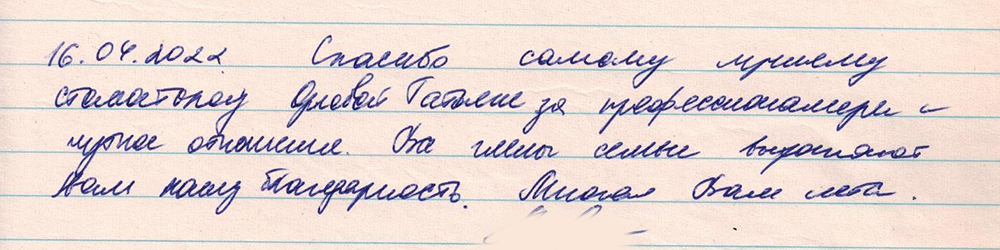 16.04.2022 Спасибо самому лучшему
стоматологу Орловой Татьяне за профессионализм и
чуткое отношение. Все члены семьи выражают
Вам нашу благодарность. Многая Вам лета.